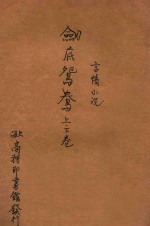 言情小說
劍底鴛鴦上下卷
上海商務印書館發行